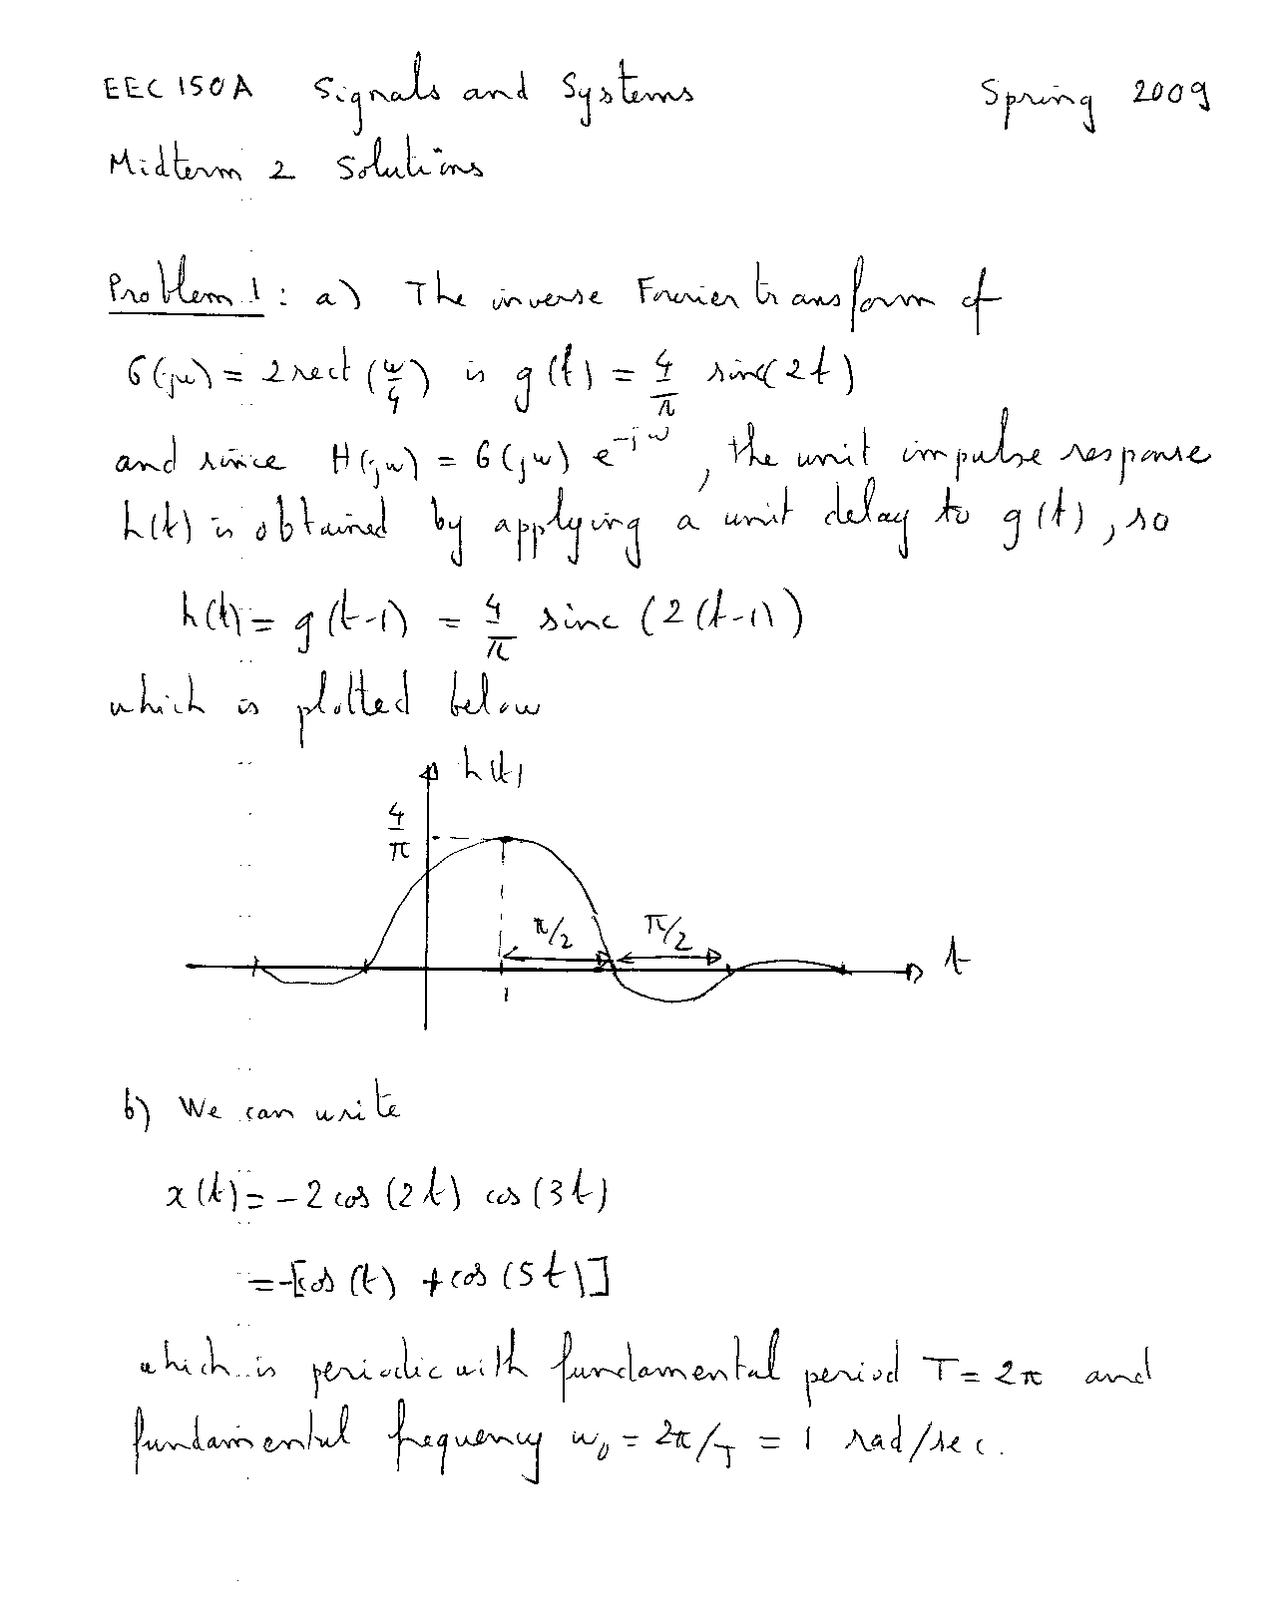 EEC 150A Signals and Systems Spring 2009
Midterm 2 Solutions
Problem 1: a) The inverse Fourier transform of
G(jω) = 2 rect (ω/4) is g(t) = 4/π sinc(2t)
and since H(jω) = G(jω) e^{-jω}, the unit impulse response
h(t) is obtained by applying a unit delay to g(t), so
h(t) = g(t-1) = 4/π sinc (2(t-1))
which is plotted below
h(t)
4/π
π/2 π/2
t
1
b) We can write
x(t) = -2 cos (2t) cos (3t)
= -[cos (t) + cos (5t)]
which is periodic with fundamental period T = 2π and
fundamental frequency ω₀ = 2π/T = 1 rad/sec.